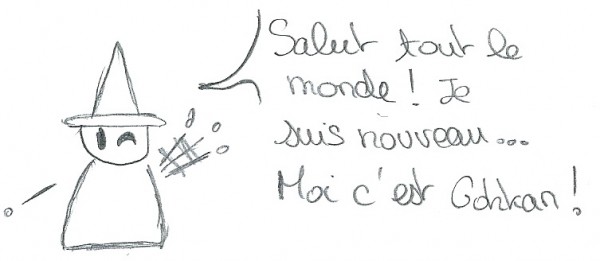 Salut tout le
monde ! Je
suis nouveau...
Moi c'est Gohkan !